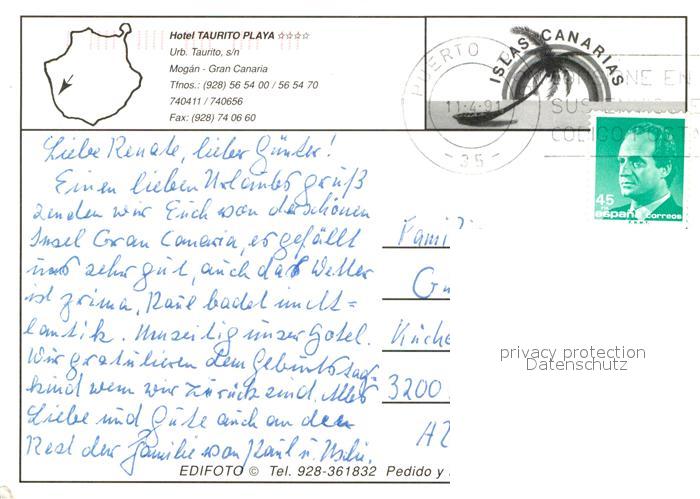 Hotel TAURITO PLAYA ☆☆☆☆
Urb. Taurito, s/n
Mogán - Gran Canaria
Tfnos.: (928) 56 54 00 / 56 54 70
740411 / 740656
Fax: (928) 74 06 60
ISLAS CANARIAS
PUERTO
11-4-91
- 35 -
45
españa correos
Liebe Renate, lieber Günter!
Einen lieben Urlaubsgruß
senden wir Euch von der schönen
Insel Gran Canaria, es gefällt
uns sehr gut, auch das Wetter
ist prima, Karl badet im At=
lantik. Umseitig unser Hotel.
Wir gratulieren dem Geburtstags=
kind wenn wir zurück sind. Alles
Liebe und Gute auch an den
Rest der Familie von Karl u. Uschi.
Fami
Gu
Küche
3200
privacy protection
Datenschutz
EDIFOTO © Tel. 928-361832 Pedido y